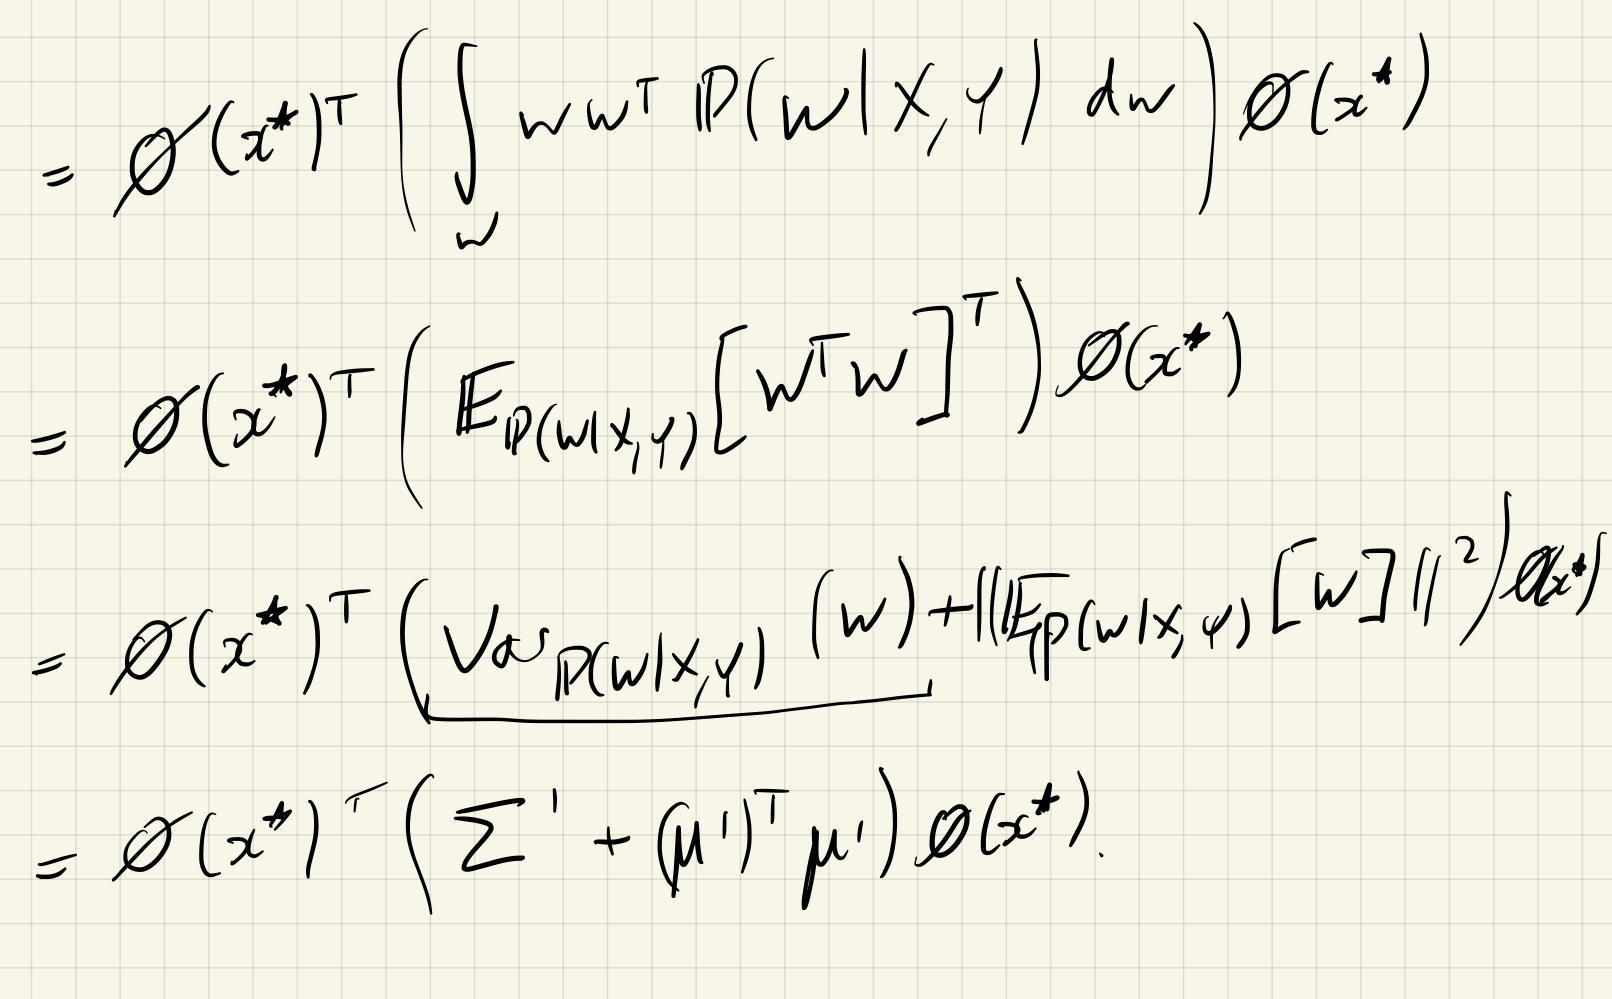 = ∅(x*)ᵀ ( ∫_w w wᵀ ℙ(w|X,Y) dw ) ∅(x*)
= ∅(x*)ᵀ ( 𝔼_ℙ(w|X,Y) [wᵀw]ᵀ ) ∅(x*)
= ∅(x*)ᵀ ( Var_ℙ(w|X,Y) (w) + ||𝔼_ℙ(w|X,Y) [w]||² ) ∅(x*)
= ∅(x*)ᵀ ( Σ' + (μ')ᵀ μ' ) ∅(x*).